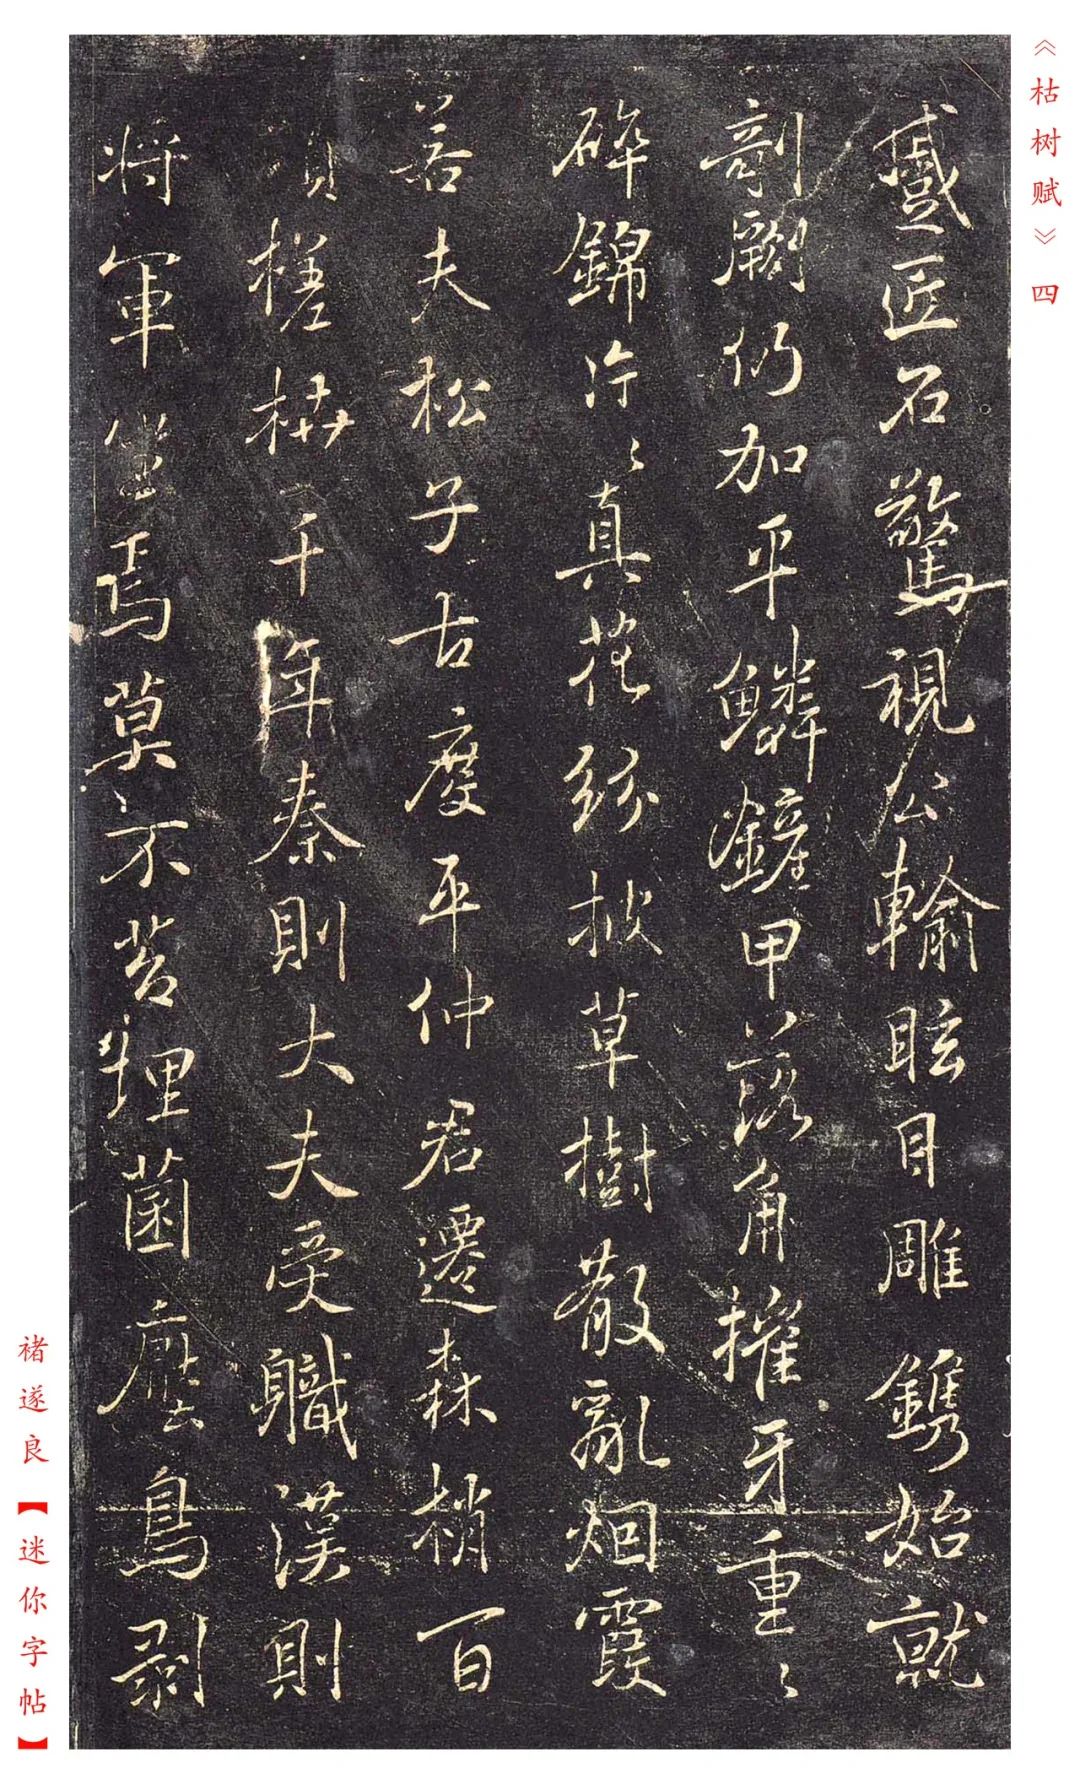 《枯树赋》四
蹙匠石驚視公輸眩目雕鐫始就
剞劂仍加平鱗鏟甲落角摧牙重〻
碎錦片〻真花紛披草樹散亂烟霞
若夫松子古度平仲君遷森梢百
頃槎枿千年秦則大夫受職漢則
将軍坐焉莫不苔埋菌壓鳥剥
褚遂良【迷你字帖】